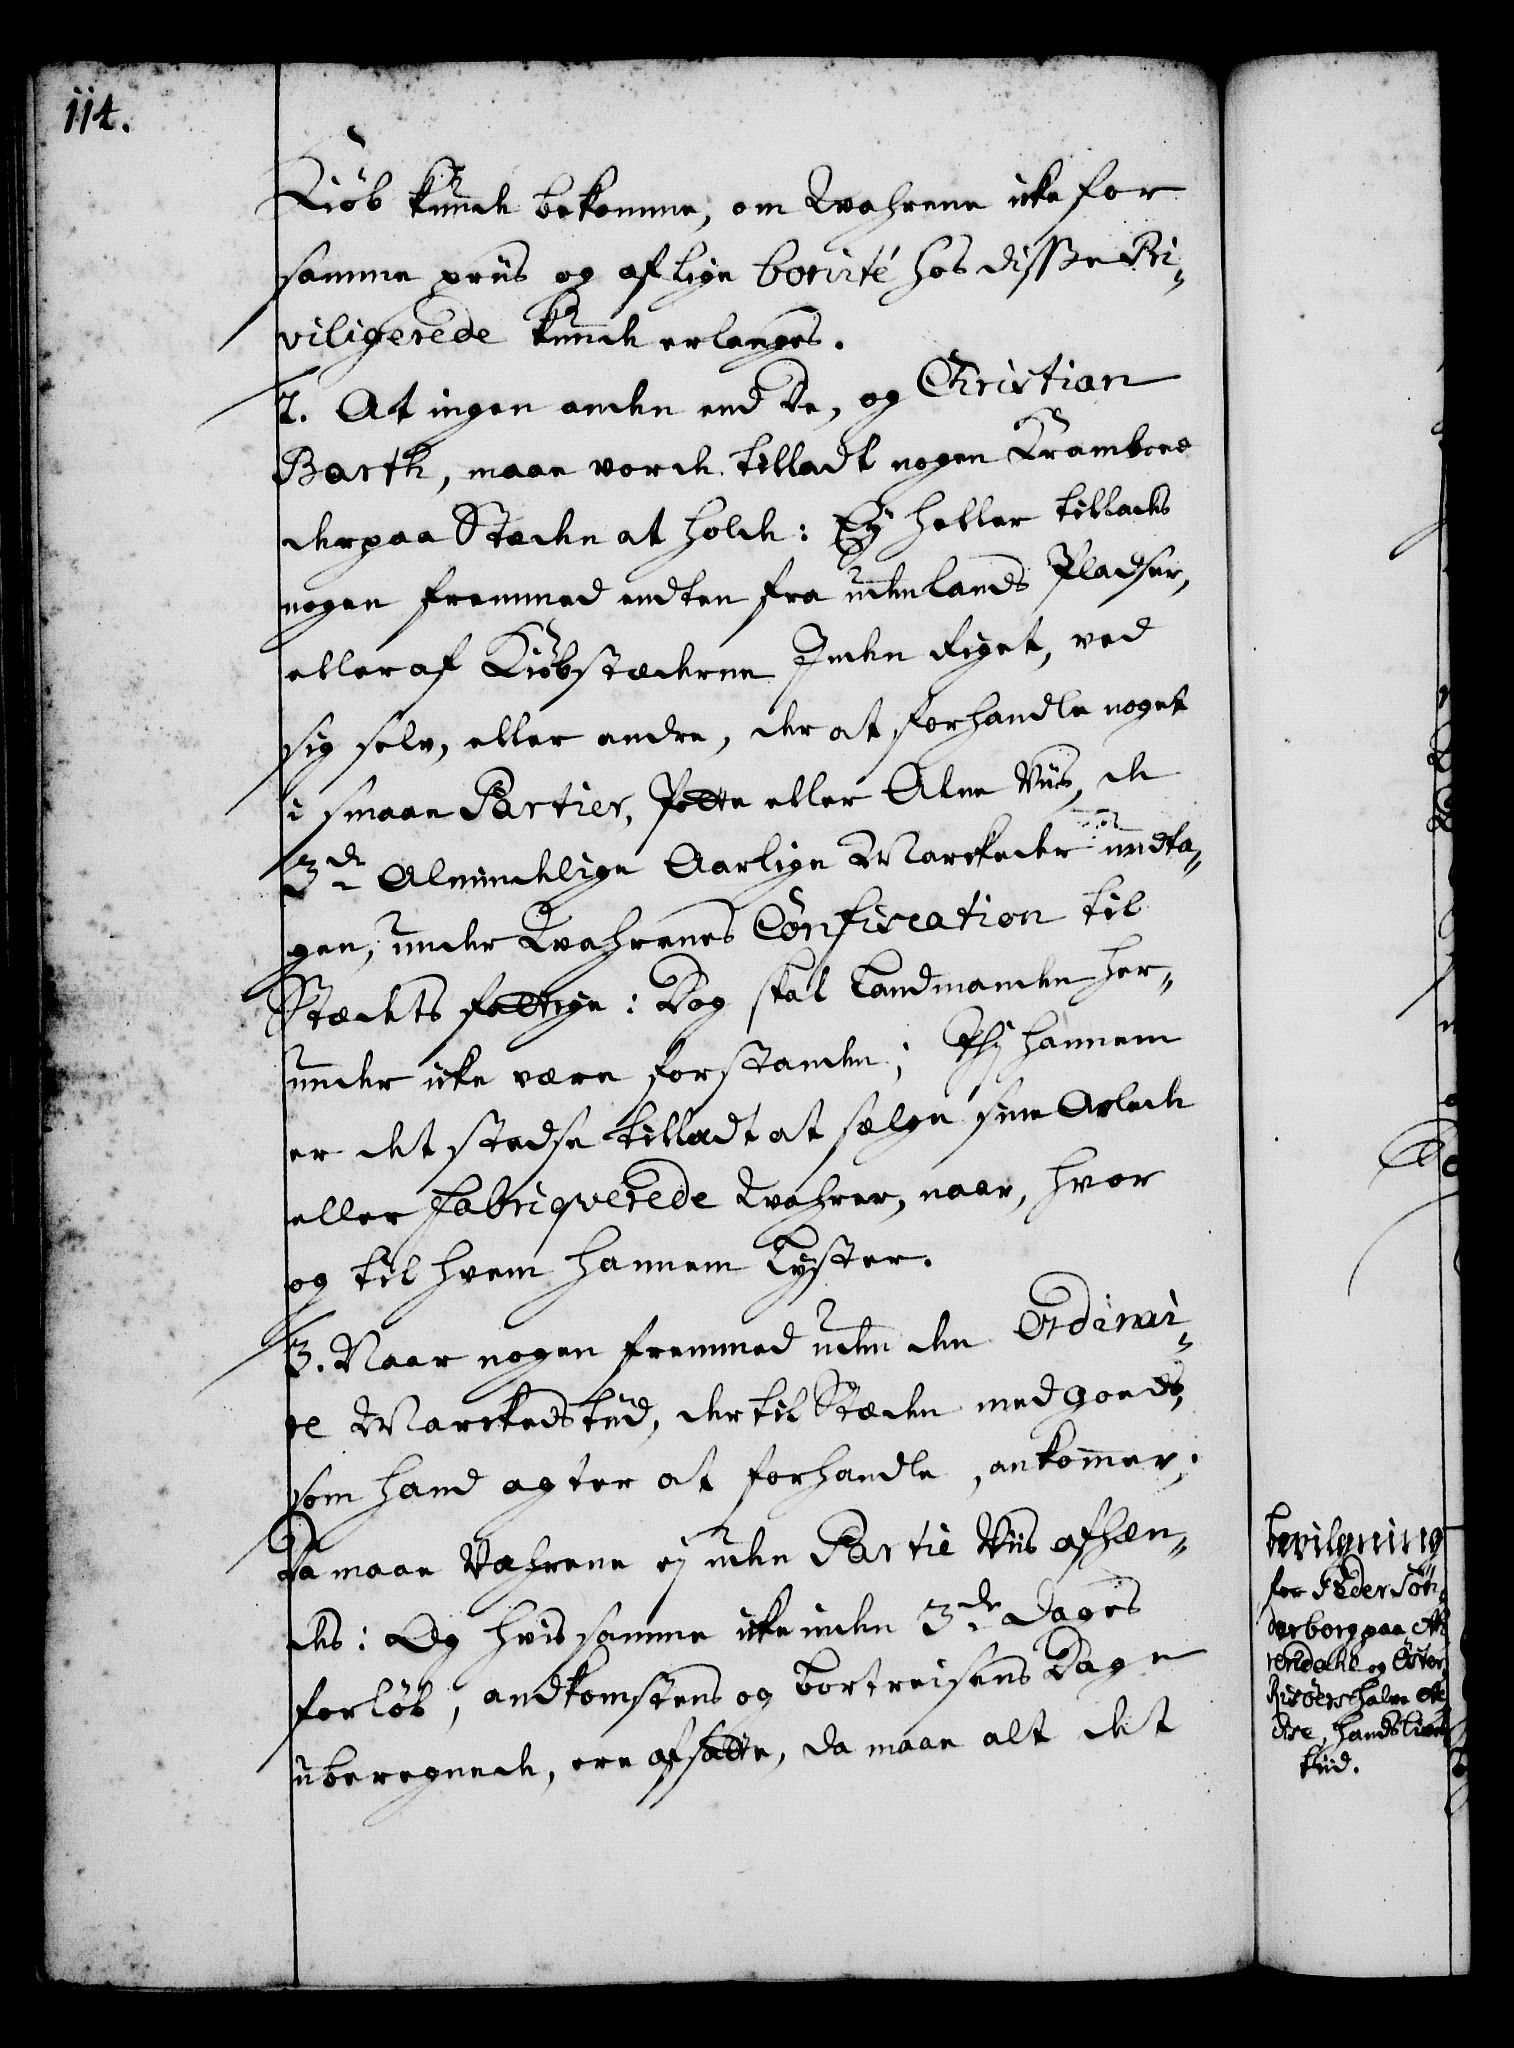 114.
Kiöb kunde bekomme, om Wahrene icke for
samme priis og af lige bonité hos disße Pri„
viligerede kunde erlanges.
2. At ingen anden end De, og Christian
Barth, maae vorde tilladt nogen Kramboed
der paa Stæden at holde: Ey heller tillades
nogen fremmed endten fra udenlands Pladser,
eller af Kiöbstæderne Inden Riget, ved
sig selv, eller andre, der at forhandle noget
i smaae Partier, Potte eller Alne Viis, de
3de Almindelige Aarlige Marckeder undta„
gen, under Wahrenes Confiscation til
Stædets fattige: Dog skal Landmanden her„
under icke være forstanden; Thj hannem
er det stedse tilladt at sælge sine Avlede
eller fabriqverede Wahrer, naar, hvor
og til hvem hannem Lyster.
3. Naar nogen fremmed uden den Ordinai„
re Marckeds tiid, der til Stæden med goeds,
som hand agter at forhandle, ankommer;
Da maae Vahrene ej uden Partie Viis afhæn„
des: Og hvis samme icke inden 3de Dages
forlöb, andkomstens og bortreisens Dage
uberegnede, ere afsatte, da maae alt det
bevilgning
for Peder Sön„
derborg paa
og Öster
Riisöers halve
hands Lives
tiid.